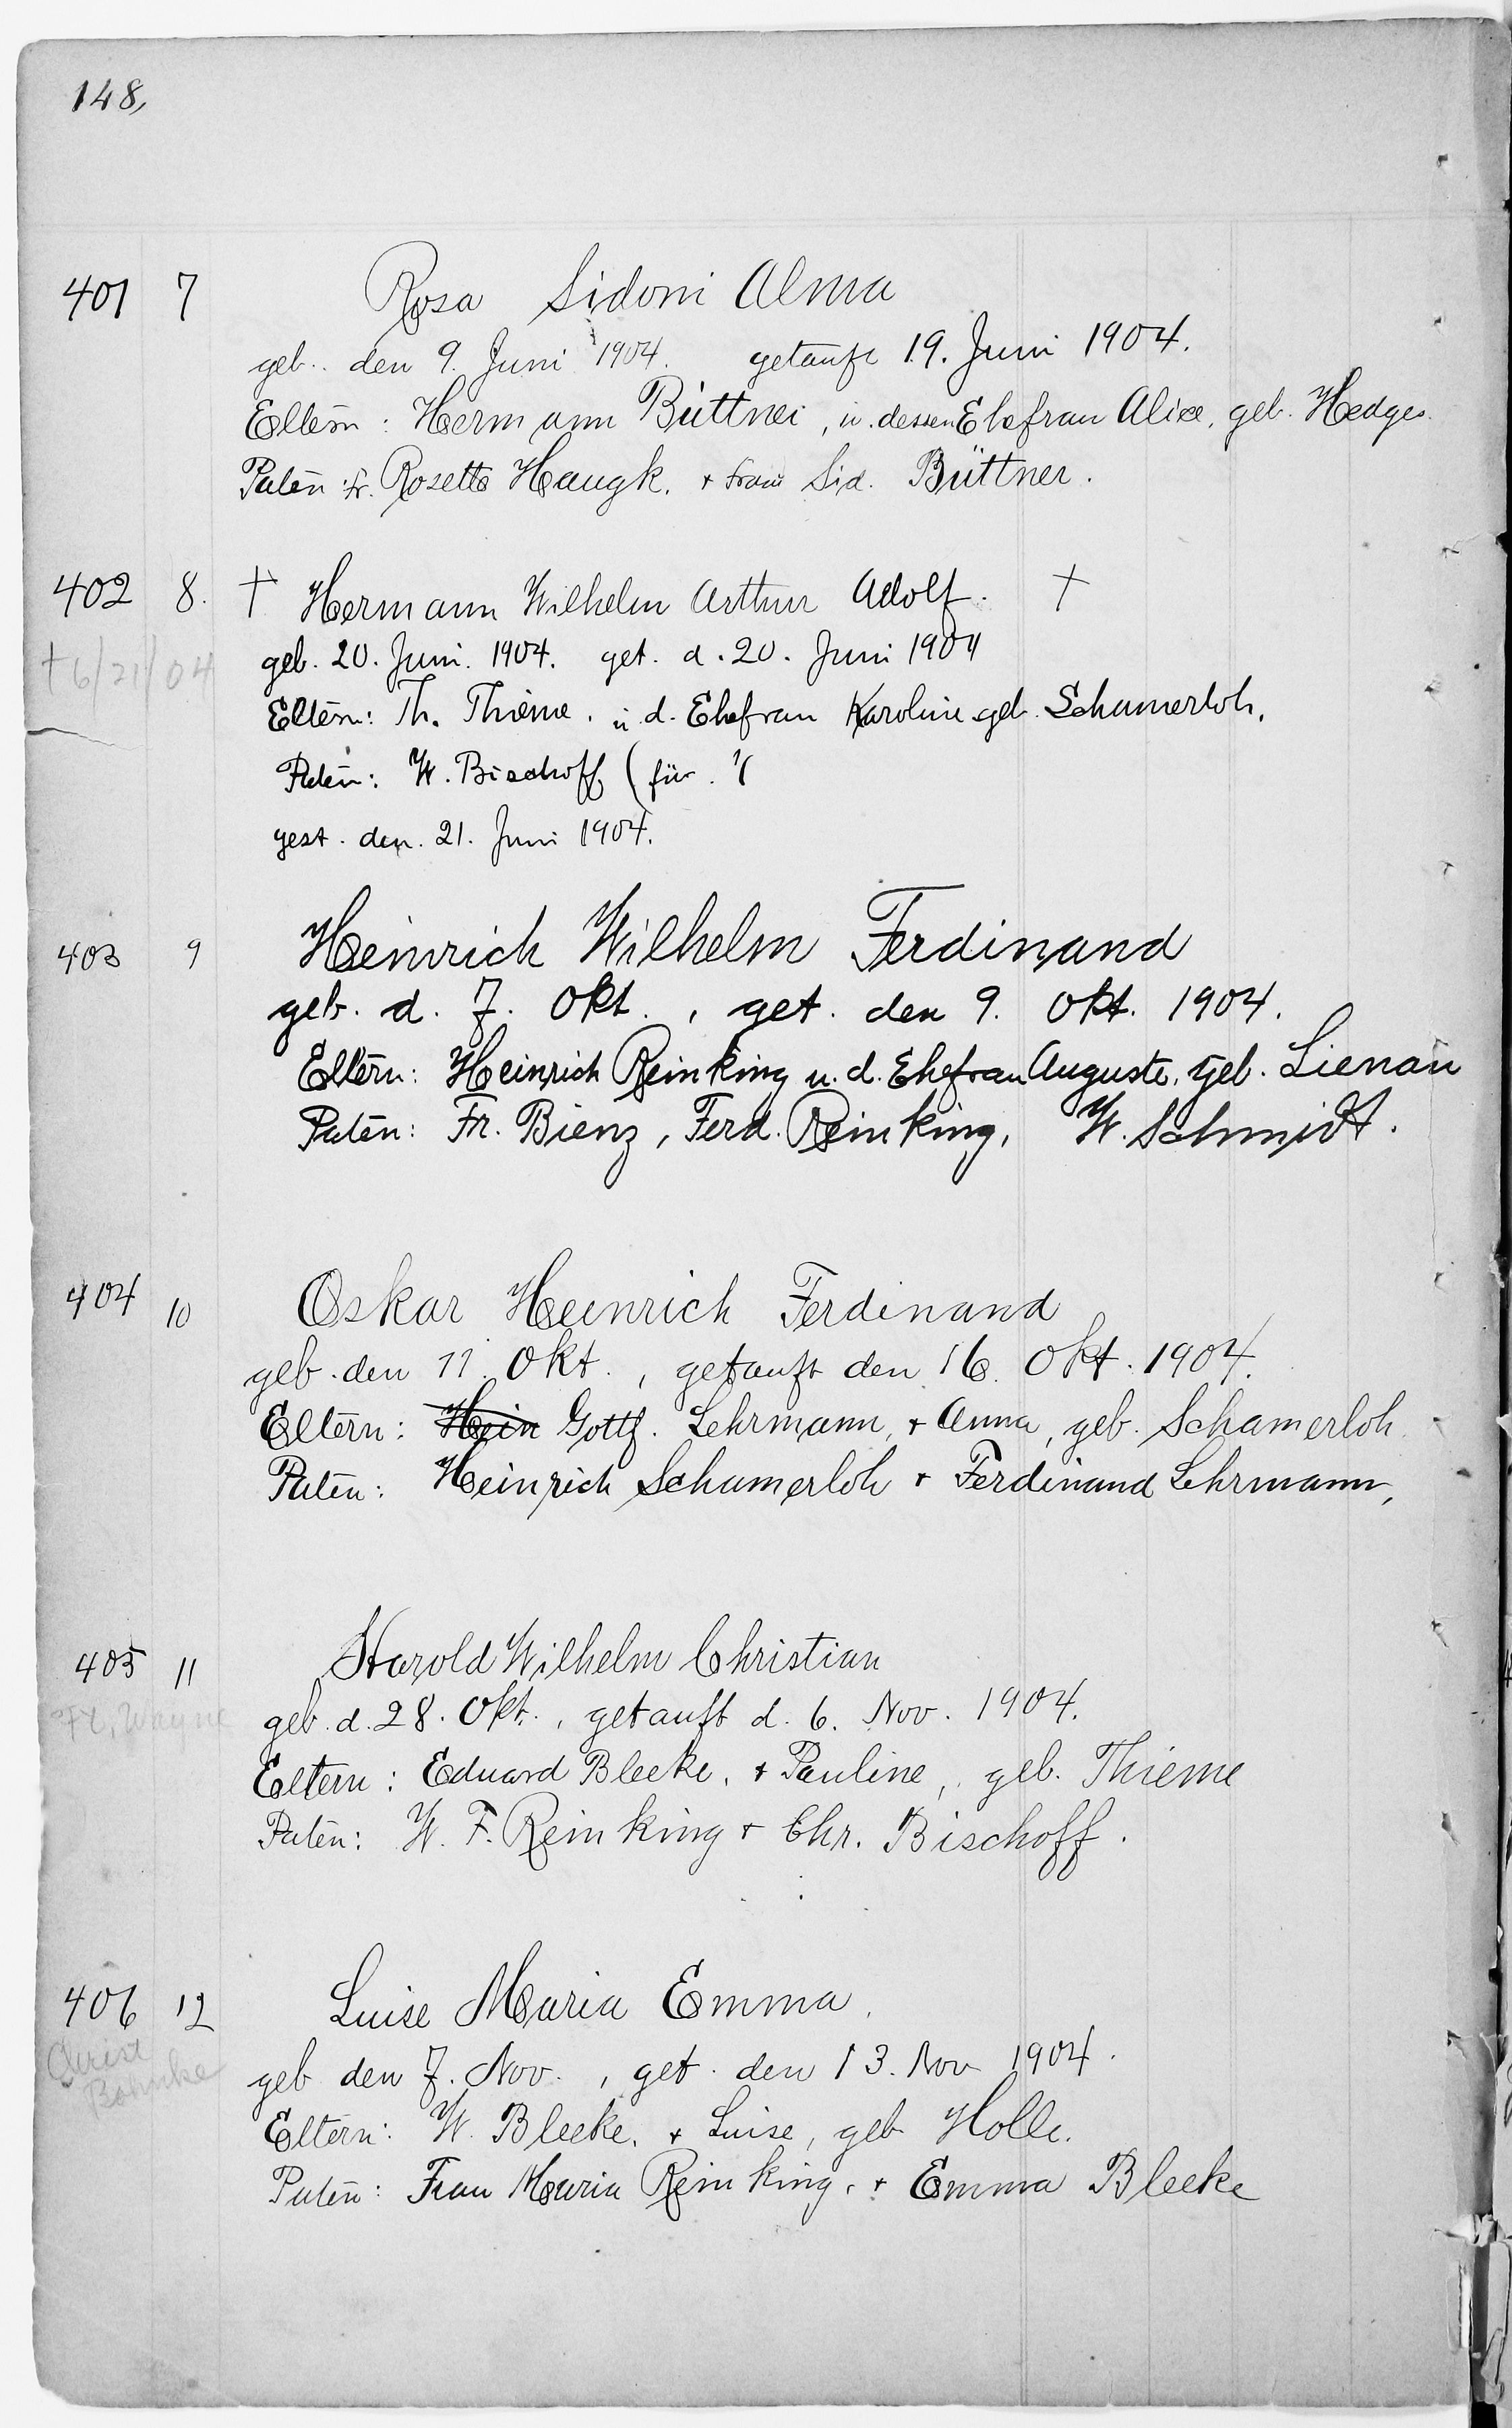 148,
401 7 Rosa Sidoni Alma
geb. den 9. Juni 1904. getauft 19. Juni 1904.
Eltern: Hermann Büttner, u. dessen Ehefrau Alice, geb. Hedges.
Paten: Fr. Rosetta Haugk. + Frau Sid. Büttner.
402 8. † Hermann Wilhelm Arthur Adolf. †
† 6/21/04 geb. 20. Juni. 1904. get. d. 20. Juni 1904
Eltern: Th. Thieme. u. d. Ehefrau Karoline geb. Schamerloh.
Paten: W. Bischoff (für
gest. den. 21. Juni 1904.
403 9 Heinrich Wilhelm Ferdinand
geb. d. 7. Okt., get. den 9. Okt. 1904.
Eltern: Heinrich Reinking u. d. Ehefrau Auguste, geb. Lienau
Paten: Fr. Bienz, Ferd. Reinking, W. Schmidt.
404 10 Oskar Heinrich Ferdinand
geb. den 11. Okt., getauft den 16. Okt. 1904.
Eltern: Hein Gottf. Lehrmann, + Anna, geb. Schamerloh
Paten: Heinrich Schamerloh + Ferdinand Lehrmann,
405 11 Harold Wilhelm Christian
Ft. Wayne geb. d. 28. Okt., getauft d. 6. Nov. 1904.
Eltern: Eduard Bleeke, + Pauline, geb. Thieme
Paten: W. F. Reinking + Chr. Bischoff.
406 12 Luise Maria Emma.
Christ geb den 7. Nov., get. den 13. Nov 1904.
Bohnke
Eltern: W. Bleeke. + Luise, geb Holle.
Paten: Frau Maria Reinking, + Emma Bleeke